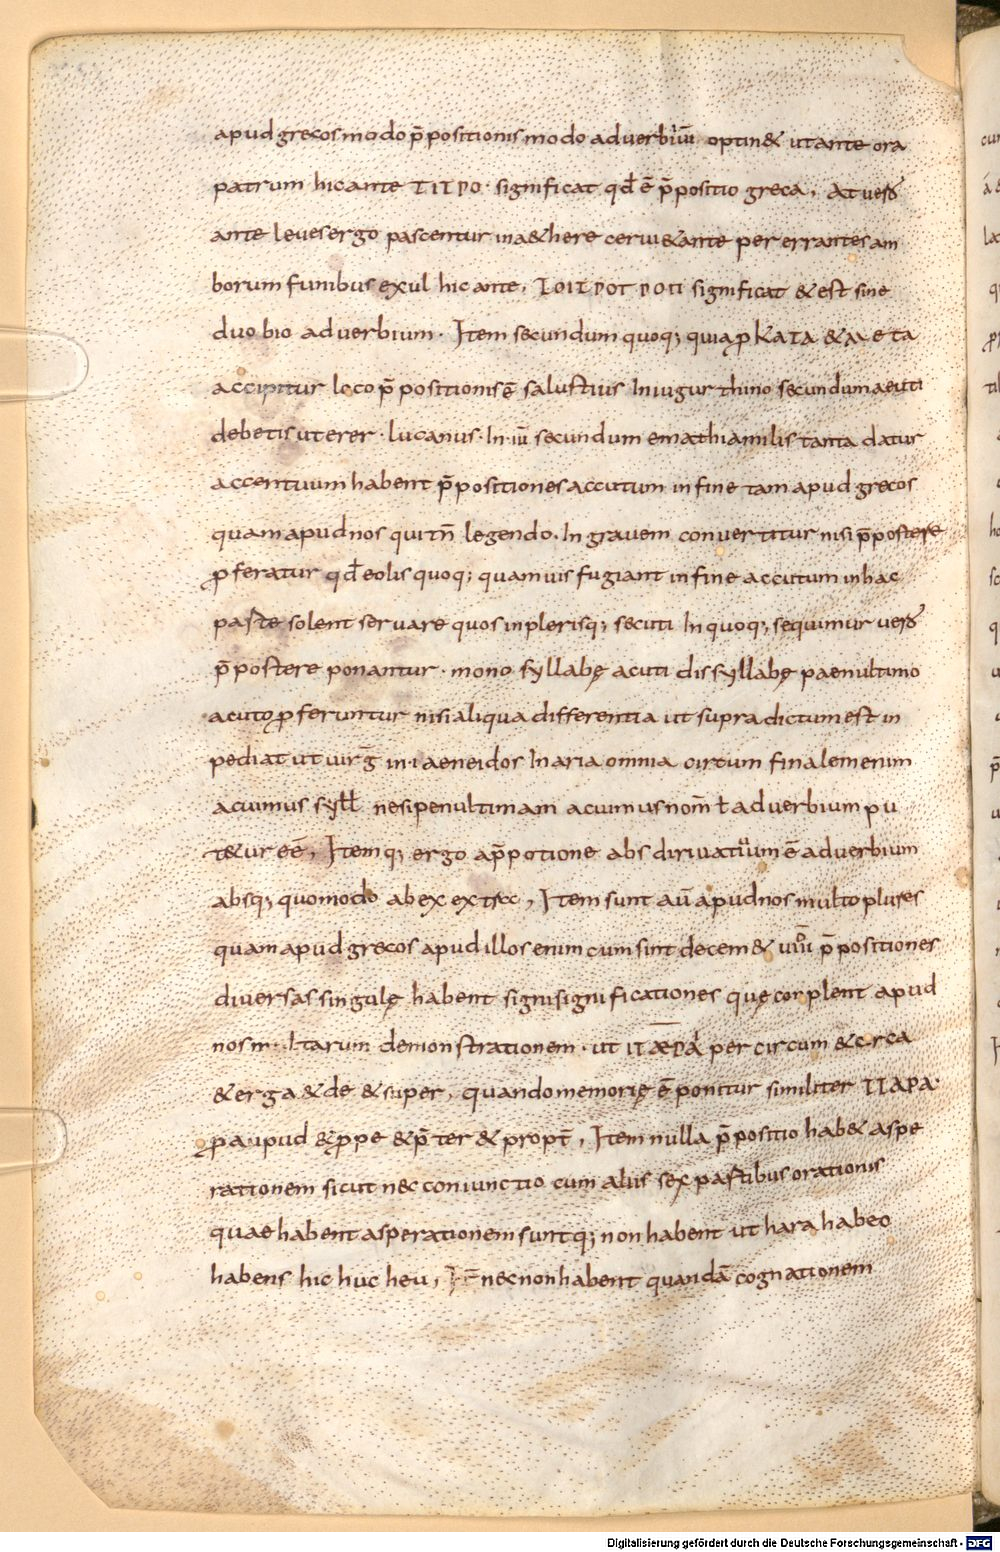 apud grecos modo p̄positionis modo adverbiū optin& ut ante ora
patrum hic ante ΠΡΟ· significat qđ ē p̄positio greca, At vero
ante leves ergo pascentur in aethere cervi & ante pererrantes am
borum funibus exul hic ante, significat & est sine
duo bio adverbium· Item secundum quoq; quia ꝓ ΚΑΤΑ &
accipitur loco p̄positionis ē salustius In iugurthino secundum ae
debetis uterer· lucanus· In·iiii secundum emathiam lis tanta datur
accentuum habent p̄positiones accutum in fine tam apud grecos
quam apud nos qui tn̄ legendo· In gravem convertitur nisi p̄postere
ꝓferatur qđ eolis quoq; quamvis fugiant in fine accutum in hac
parte solent servare quos in plerisq; secuti In quoq; sequimur vero
p̄postere ponantur· mono syllabę acuti dissyllabę paenultimo
acuto ꝓferuntur nisi aliqua differentia ut supra dictum est in
pediat ut virḡ in·i aeneidos In aria omnia circum finalem enim
acuimus syll nesi penultimam acuimus nom̄ ł adverbium pu
t&ur eē, Itemq; ergo a p̄potione abs dirivativum ē adverbium
absq; quomodo ab ex extra, Item sunt aū apud nos multo plures
quam apud grecos apud illos enim cum sint decem & viii p̄positiones
diversas singulę habent signisignificationes quę complent apud
nos m· ltarum demonstrationem· ut per circum & circa
& erga & de & super, quando memorię ē ponitur similiter ΠΑΡΑ·
ꝓ apud & ꝓpe & p̄ter & propt̄, Item nulla p̄positio hab& aspe
rationem sicut nec coniunctio cum aliis sex partibus orationis
quae habent asperationem suntq; non habent ut hara habeo
habens hic huc heu, nec non habent quandā cognationem
Digitalisierung gefördert durch die Deutsche Forschungsgemeinschaft - DFG